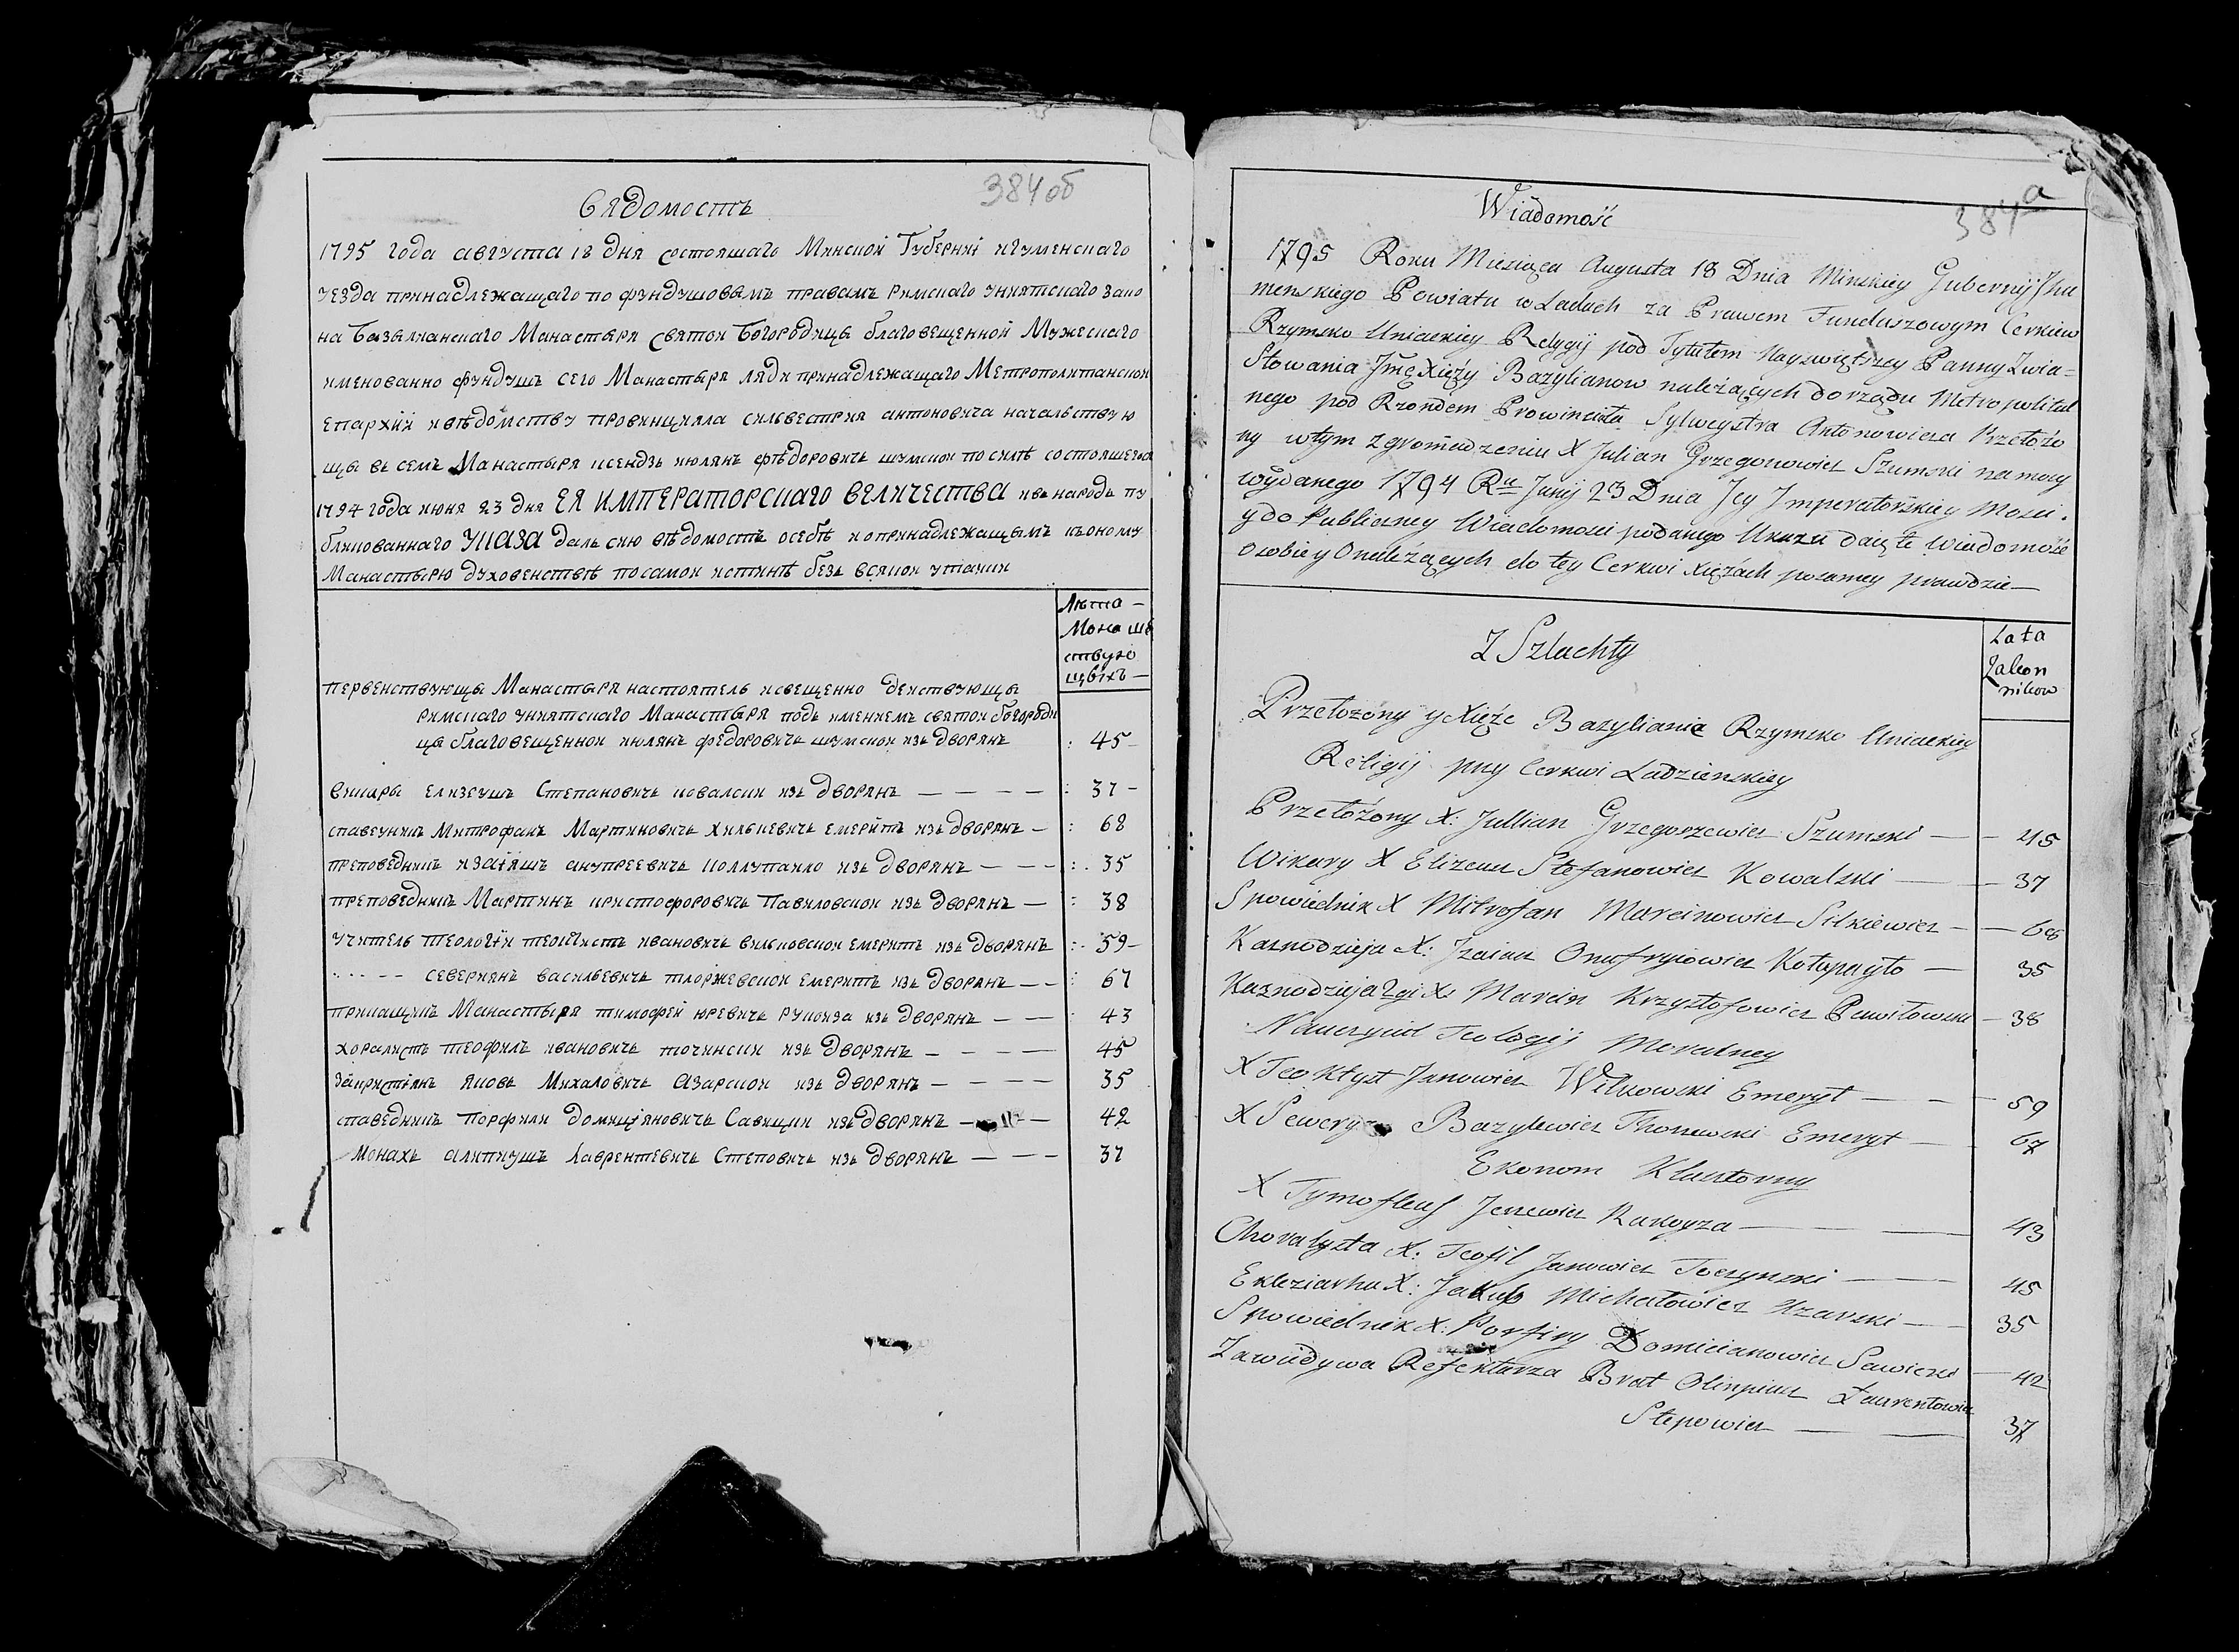 384об
Вядомость
1795 года августа 18 дня состоящаго Минской Губерниі игуменскаго
уезда принадлежащаго по фундушовымъ правамъ Римскаго униятскаго зако
на Базылианскаго Манастыря святой Богородицы благовещенной Мужескаго
именованно фундушъ сего Манастыря ляди принадлежащаго Метрополитанской
Епархій и вѣдомству провинцияла сильвестрия антоновича начальствую
щы въ семъ Манастыря ксендзь июлянъ фѣдоровичь шумской по силѣ состоящегося
1794 года июня 23 дня ЕЯ ИМПЕРАТОРСКАГО ВЕЛИЧЕСТВА и въ народъ пу
бликованнаго УКАЗА даль сию вѣдомость осебѣ и о принадлежащымъ къ оному
Манастырю духовенствѣ по самой истинѣ безъ всякой утайки
Люта —
Монашь
ствую
щвіхъ —
первенствующы Манастыря настоятель и священно действующы
Римскаго униятскаго Манастыря подъ имениемъ святой богороди
цы благовещенной июлянъ федоровичь шумской изь дворянъ : 45 —
викиры Елизеушъ Степановичь ковалский изь дворянъ — — — — : 37 —
спавеуникъ Митрофанъ Мартиновичь Хилькевичь емеритъ изь дворянъ — : 68
преповедникъ изаіяшъ анупреевичь Коллупайло изь дворянъ — — — : 35
преповедникъ Мартинъ кристофоровичь Павиловской изь дворянъ — : 38
учитель теологіи теоктистъ ивановичь вильковской емеритъ изь дворянъ : 59 —
северианъ васильевичь тлоржевской емеритъ изь дворянъ — — : 67
прикащикъ Манастыря тимофей юревичь Рукойза изь дворянъ — — : 43
хоралистъ теофилъ ивановичь точинский изь дворянъ — — — — 45
Закристіянъ яковъ Михаловичь Азарской изь дворянъ — — — — 35
спаведникъ Порфили домициановичь Савицкий изь дворянъ — — 42
Монахъ алипиушъ лаврентевичь Степовичь изь дворянъ — — — 37
384а
Wiadomość
1795 Roku Miesiąca Augusta 18 Dnia Minskiey Gubernij Ihu
menskiego Powiatu w Ladach za Prawem Funduszowym Cerkiew
Rzymsko Uniackiey Religij pod Tytułem Nayswiętszey Panny Zwia=
stowania Jmć Xięży Bazylianow należących do rządu Metropolital
nego pod Rzondem Prowincała Sylweystra Antonowicza Przełożo
ny w tym zgromadzeniu X Julian Grzegorzowicz Szumski na mocy
wydanego 1794 Ru Junij 23 Dnia Jey Imperatorskiey Mości.
y do Publiczney Wiadomosci podanego Ukazu daię te wiadomość
o sobie y o należących do tey Cerkwi Xiężach po samey prawdzie —
Z Szlachty
Lata
Zakon
nikow
Przełożony y Xięże Bazylianie Rzymsko Uniackiey
Religij przy Cerkwi Ladzienskiey
Przełożony X: Jullian Grzegorzewicz Szumski — — 45
Wikary X Elizeusz Stefanowicz Kowalski — — 37
Spowiednik X Mitrofan Marcinowicz Silkiewicz — — 68
Kaznodzieja X: Izaiasz Onufryiowicz Kołupayło — 35
Kaznodzieja 2gi X: Marcin Krzysztofowicz Pawiłowski — 38
Nauczyciel Teologij Moralney
X Teoktyst Janowicz Wilkowski Emeryt — — 59
X Seweryn Bazylewicz Emeryt — 67
Ekonom Klasztorny
X Tymofteusz Jerzewicz Rukoyza — — 43
Choralysta X: Teofil Janowicz Toczynski — — 45
Ekleziarha X: Jakub Michałowicz Azarski — — 35
Spowiednik X: Porfiry Domicianowicz Sawicki — 42
Zawiadywa Refektarza Brat Olimpiusz Laurentowicz
Stepowicz — — 37